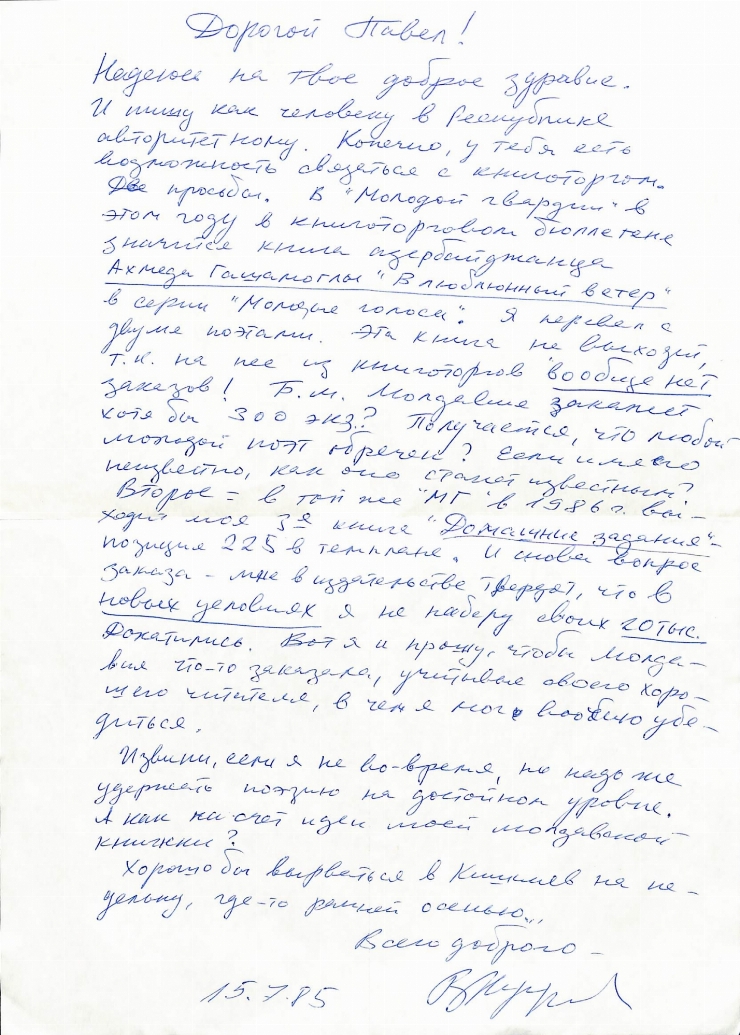 Дорогой Павел!
Надеюсь на твое доброе здравие.
И пишу как человеку в Республике
авторитетному. Конечно, у тебя есть
возможность связаться с книготоргом.
Две просьбы. В "Молодой гвардии" в
этом году в книготорговом бюллетене
значится книга азербайджанца
Ахмеда Гашамоглы "Влюблённый ветер"
в серии "Молодые голоса". Я перевел с
двумя поэтами. Эта книга не выходит,
т.к. на нее из книготоргов вообще нет
заказов! Б.м. Молдавия закажет
хотя бы 300 экз? Получается, что любой
молодой поэт обречен? Если имя его
неизвестно, как оно станет известным?
Второе = в той же "МГ" в 1986 г. вы-
ходит моя 3я книга "Домашние задания" -
позиция 225 в темплане. И снова вопрос
заказа - мне в издательстве твердят, что в
новых условиях я не наберу своих 20 тыс.
Докатились. Вот я и прошу, чтобы Молда-
вия что-то заказала, учитывая своего хоро-
шего читателя, в чем я мог воочию убе-
диться.
Извини, если я не во-время, но надо же
удержать поэзию на достойном уровне.
А как на счет идеи моей молдавской
книжки?
Хорошо бы вырваться в Кишинев на не-
дельку, где-то ранней осенью...
Всего доброго -
15.7.85